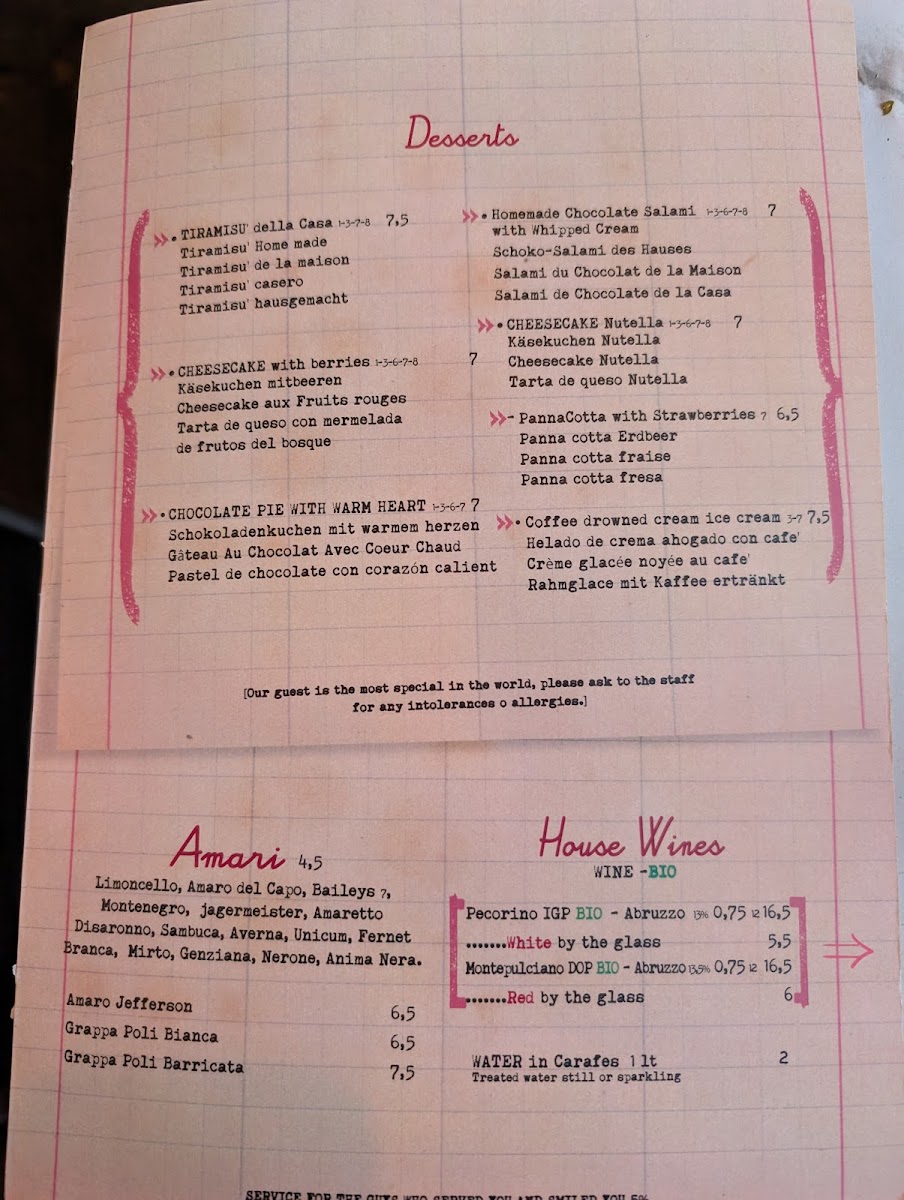 Desserts
• TIRAMISU' della Casa 1-3-7-8 7,5
Tiramisu' Home made
Tiramisu' de la maison
Tiramisu' casero
Tiramisu' hausgemacht
• CHEESECAKE with berries 1-3-6-7-8 7
Käsekuchen mitbeeren
Cheesecake aux Fruits rouges
Tarta de queso con mermelada
de frutos del bosque
• CHOCOLATE PIE WITH WARM HEART 1-3-6-7 7
Schokoladenkuchen mit warmem herzen
Gâteau Au Chocolat Avec Coeur Chaud
Pastel de chocolate con corazón calient
• Homemade Chocolate Salami 1-3-6-7-8 7
with Whipped Cream
Schoko-Salami des Hauses
Salami du Chocolat de la Maison
Salami de Chocolate de la Casa
• CHEESECAKE Nutella 1-3-6-7-8 7
Käsekuchen Nutella
Cheesecake Nutella
Tarta de queso Nutella
- PannaCotta with Strawberries 7 6,5
Panna cotta Erdbeer
Panna cotta fraise
Panna cotta fresa
• Coffee drowned cream ice cream 3-7 7,5
Helado de crema ahogado con cafe'
Crème glacée noyée au cafe'
Rahmglace mit Kaffee ertränkt
[Our guest is the most special in the world, please ask to the staff
for any intolerances o allergies.]
Amari 4,5
Limoncello, Amaro del Capo, Baileys 7,
Montenegro, jagermeister, Amaretto
Disaronno, Sambuca, Averna, Unicum, Fernet
Branca, Mirto, Genziana, Nerone, Anima Nera.
Amaro Jefferson 6,5
Grappa Poli Bianca 6,5
Grappa Poli Barricata 7,5
House Wines
WINE -BIO
Pecorino IGP BIO - Abruzzo 13% 0,75 12 16,5
.......White by the glass 5,5
Montepulciano DOP BIO - Abruzzo 13,5% 0,75 12 16,5
.......Red by the glass 6
WATER in Carafes 1 lt 2
Treated water still or sparkling
SERVICE FOR THE GUYS WHO SERVED YOU AND SMILED YOU 5%